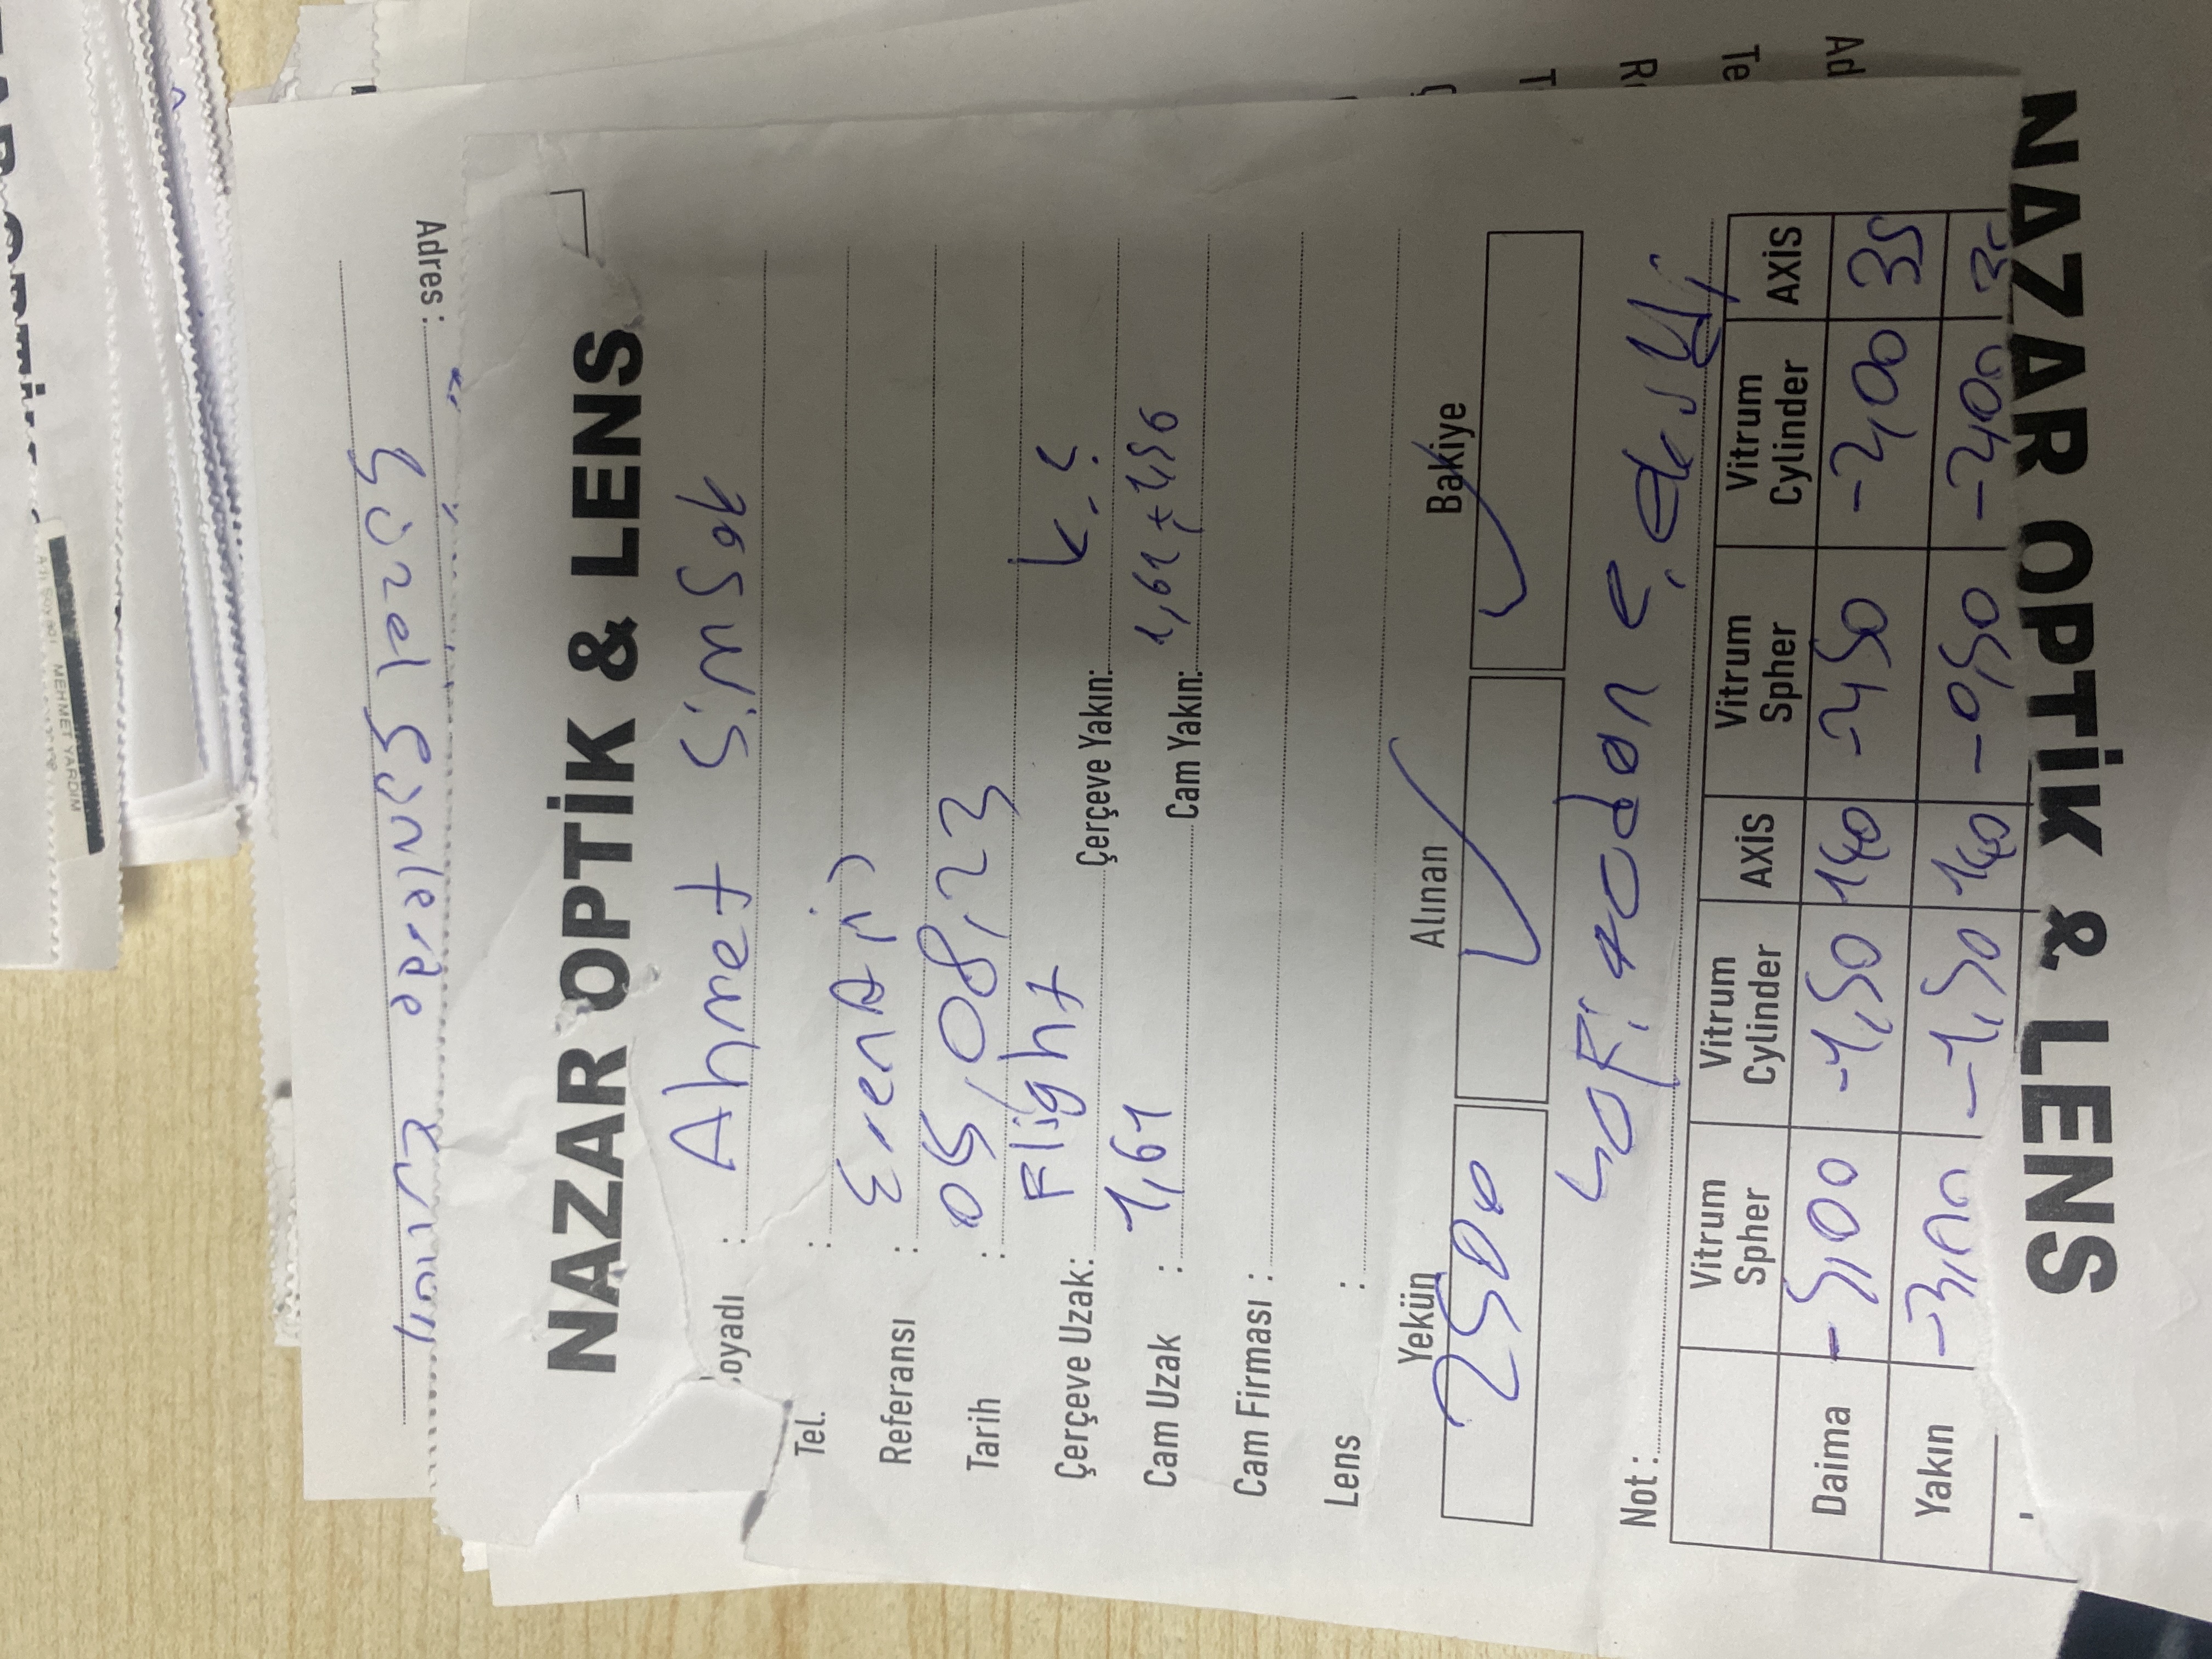 MEHMET YARDIM
Adı Soyadı
Adres :
güzel günlerde
NAZAR OPTİK & LENS
oyadı : Ahmet Simsek
Tel. :
Referansı : Eren
Tarih : 05,08,23
Çerçeve Uzak: Flight Çerçeve Yakın: K.Ç
Cam Uzak : 1,61 Cam Yakın: 1,61 + 1,56
Cam Firması :
Lens :
Yekün Alınan Bakiye
2500 ✓ ✓
Not :
Vitrum Spher Vitrum Cylinder AXİS Vitrum Spher Vitrum Cylinder AXİS
Daima -5,00 -1,50 140 -2,50 -2,00 35
Yakın -3,00 -1,50 140 -0,50 -2,00 35
NAZAR OPTİK & LENS